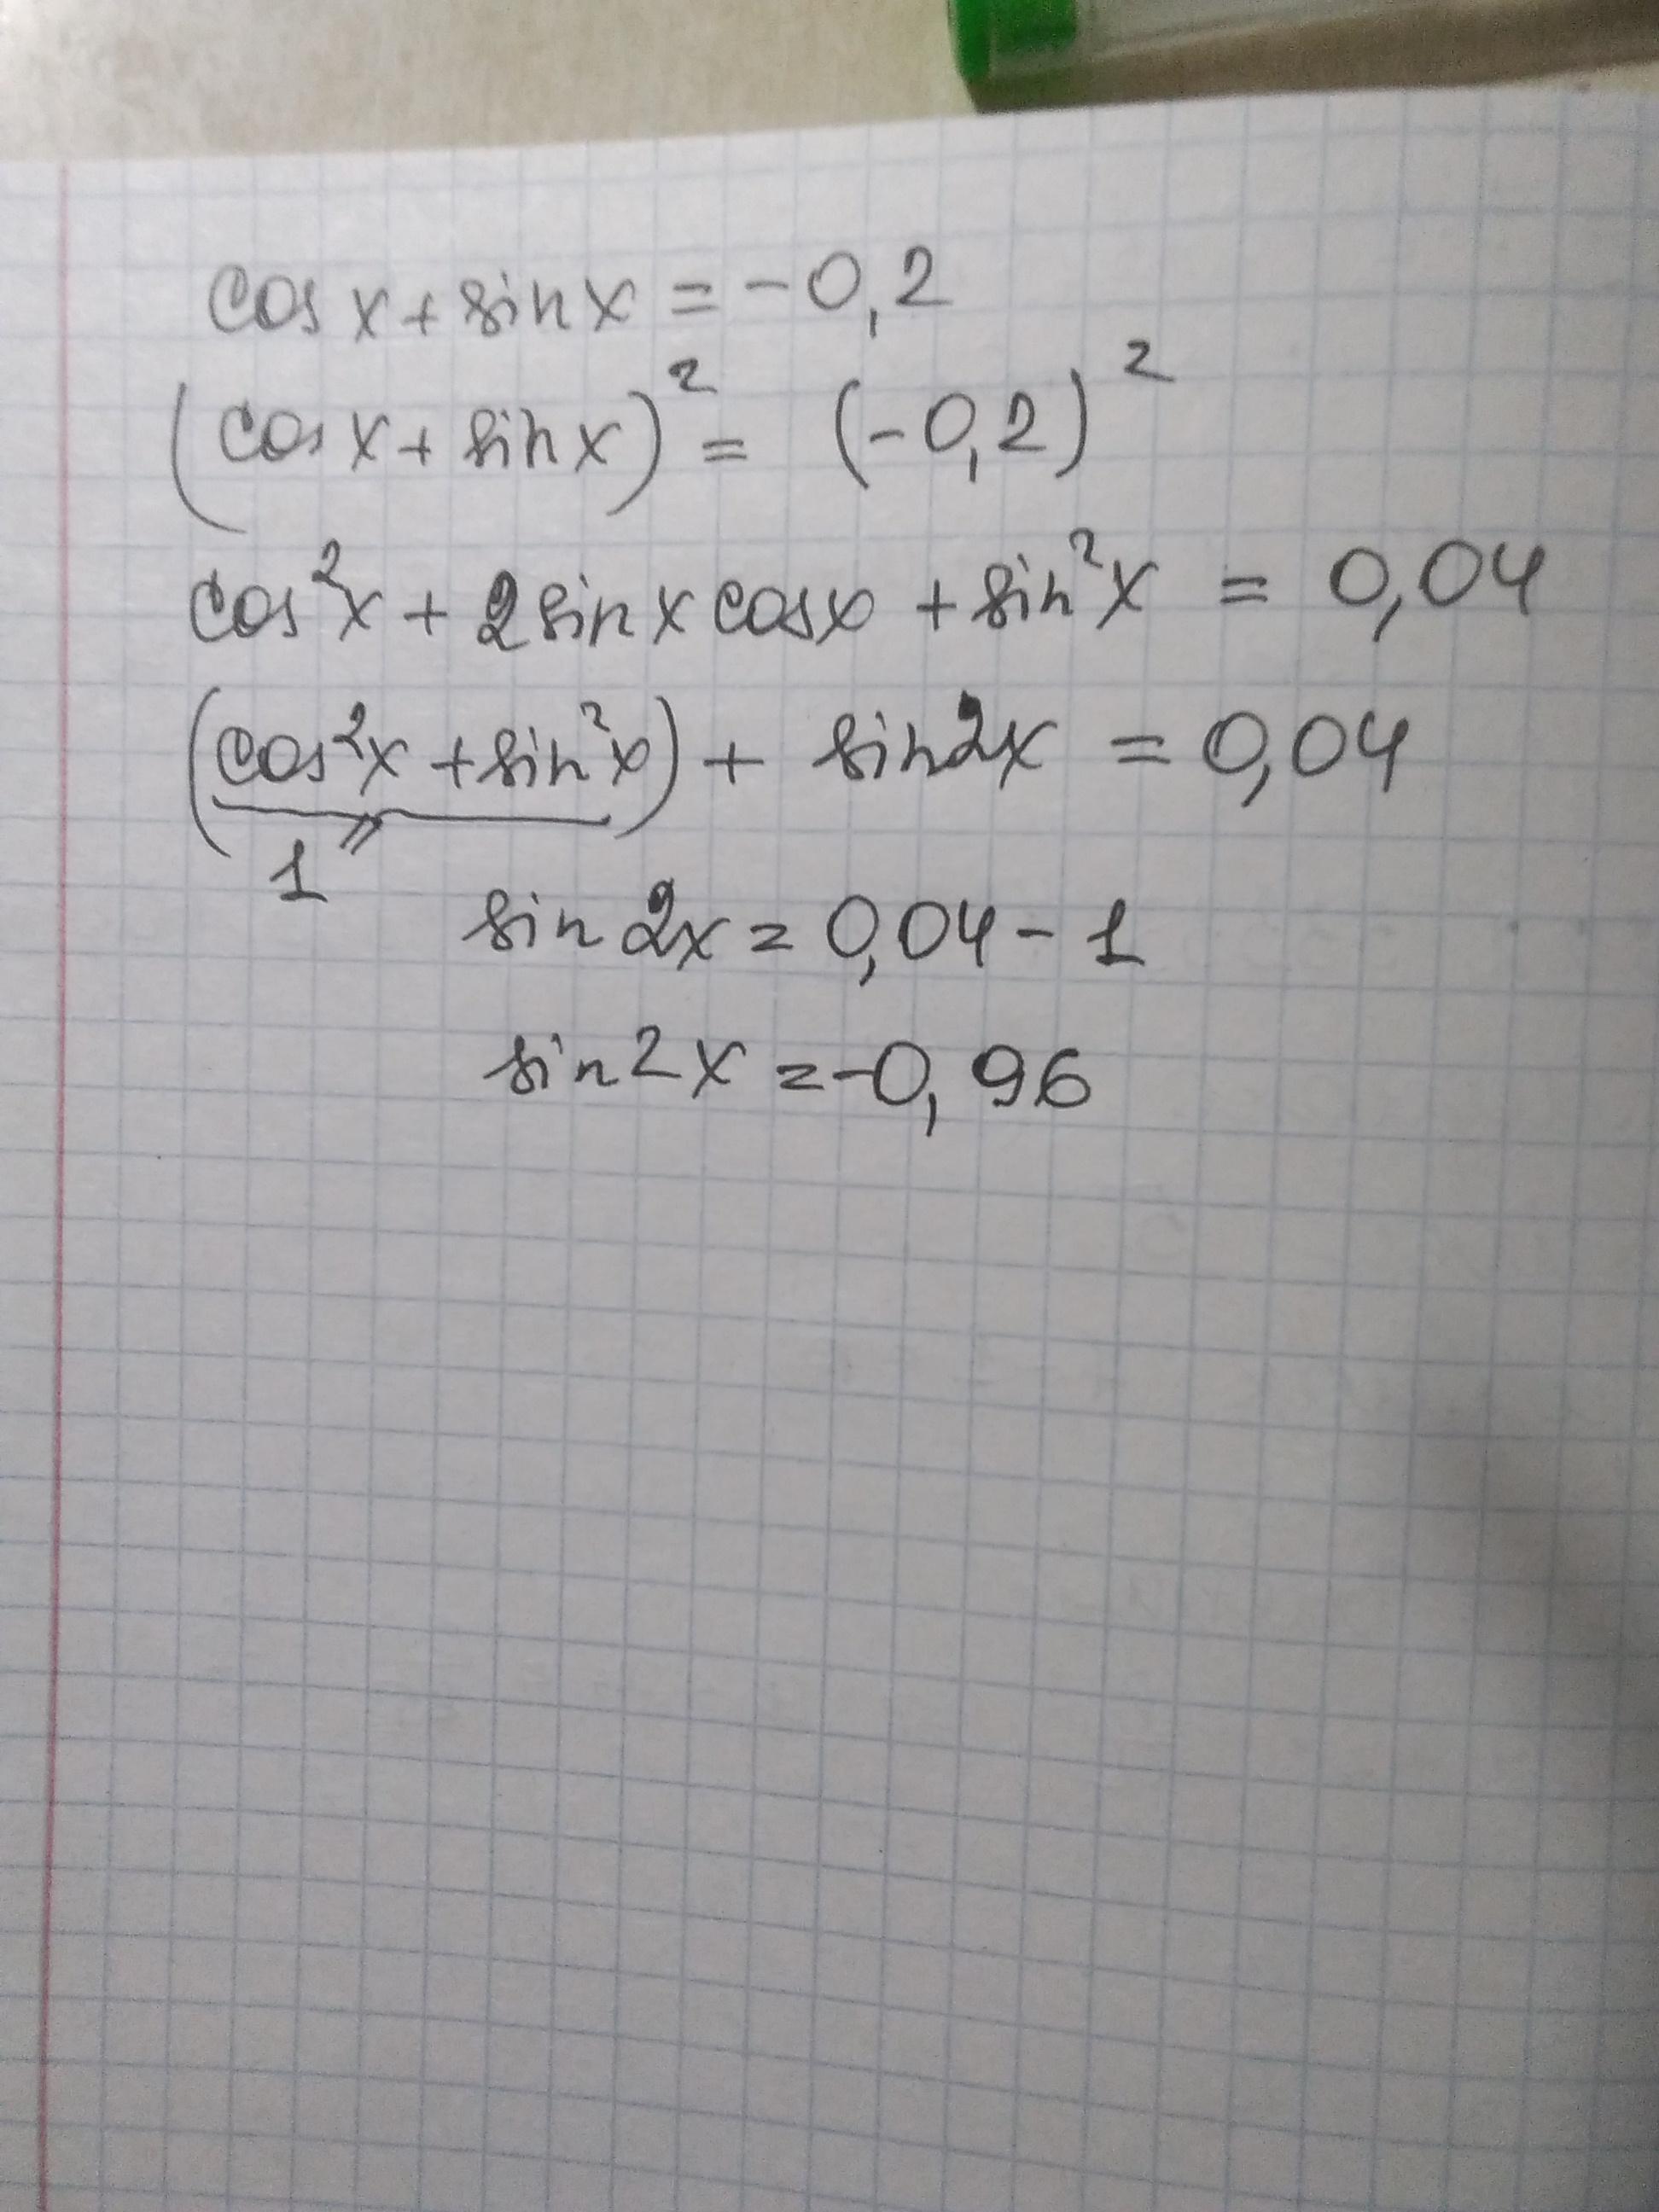 cos x + sin x = -0,2
(cos x + sin x)² = (-0,2)²
cos²x + 2 sin x cos x + sin²x = 0,04
(cos²x + sin²x) + sin 2x = 0,04
1 =
sin 2x = 0,04 - 1
sin 2x = -0,96